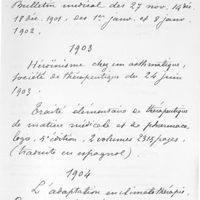 Bulletin médical des 27 nov. 14 déc.
18 déc. 1901, des 1er janv. et 8 janv.
1902.
1903
Héroïnisme chez un asthmatique,
société de thérapeutique du 24 juin
1903.
Traité élémentaire de thérapeutique
de matière médicale et de pharmaco
logie, 5e édition, 2 volumes 2313 pages,
(traduite en espagnol).
1904
L'adaptation en climatothérapie.